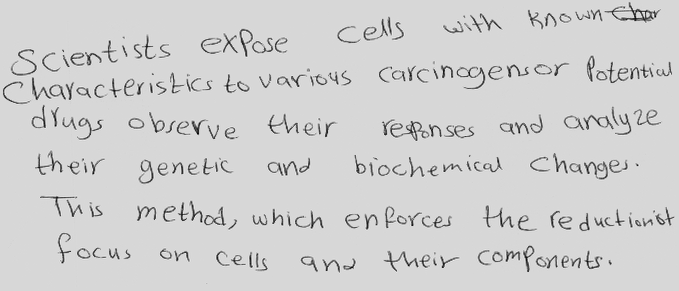 Scientists expose cells with known
Characteristics to various carcinogens or Potential
drugs observe their responses and analyze
their genetic and biochemical Changes.
This method, which enforces the reductionist
focus on cells and their components.